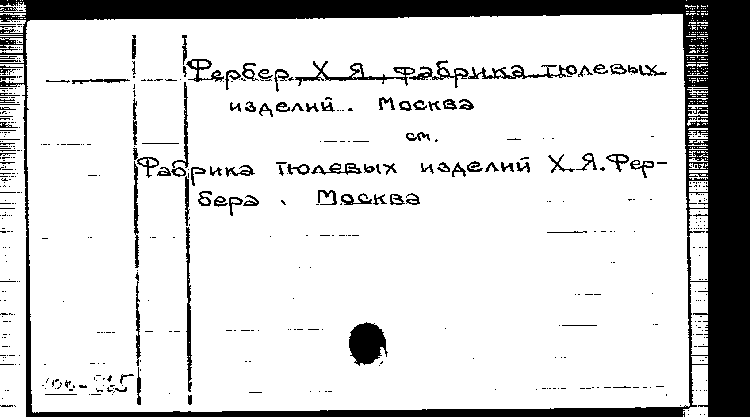 Фербер, Х. Я., фабрика тюлевых
изделий. Москва
см.
Фабрика тюлевых изделий Х.Я.Фер-
бера. Москва